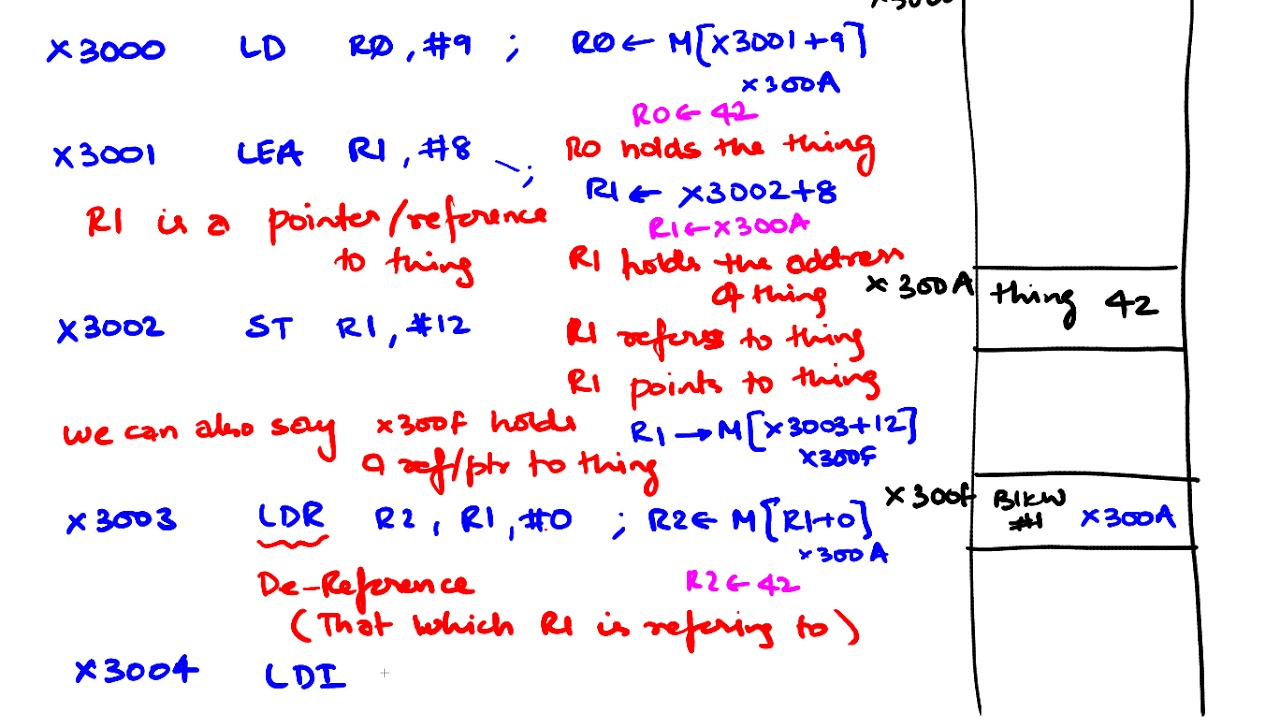 x3000 LD R0, #9 ; R0 ← M[x3001+9]
x300A
R0 ← 42
x3001 LEA R1, #8 ; R0 holds the thing
R1 ← x3002+8
R1 is a pointer/reference to thing
R1 ← x300A
R1 holds the address of thing
x3002 ST R1, #12
R1 refers to thing
R1 points to thing
we can also say x300F holds
a ref/ptr to thing
R1 → M[x3003+12]
x300F
x3003 LDR R2, R1, #0 ; R2 ← M[R1+0]
x300A
De-Reference
R2 ← 42
(That which R1 is refering to)
x3004 LDI
x300A thing 42
x300F BLKW #1 x300A